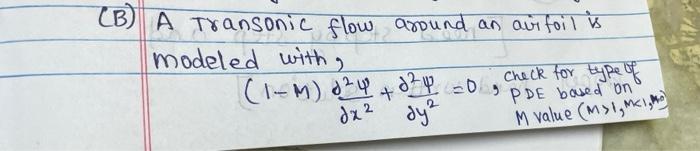 (B) A Transonic flow around an airfoil is
modeled with,
(1-M) ∂²φ/∂x² + ∂²φ/∂y² = 0, check for type of
PDE based on
M value (M>1, M<1,